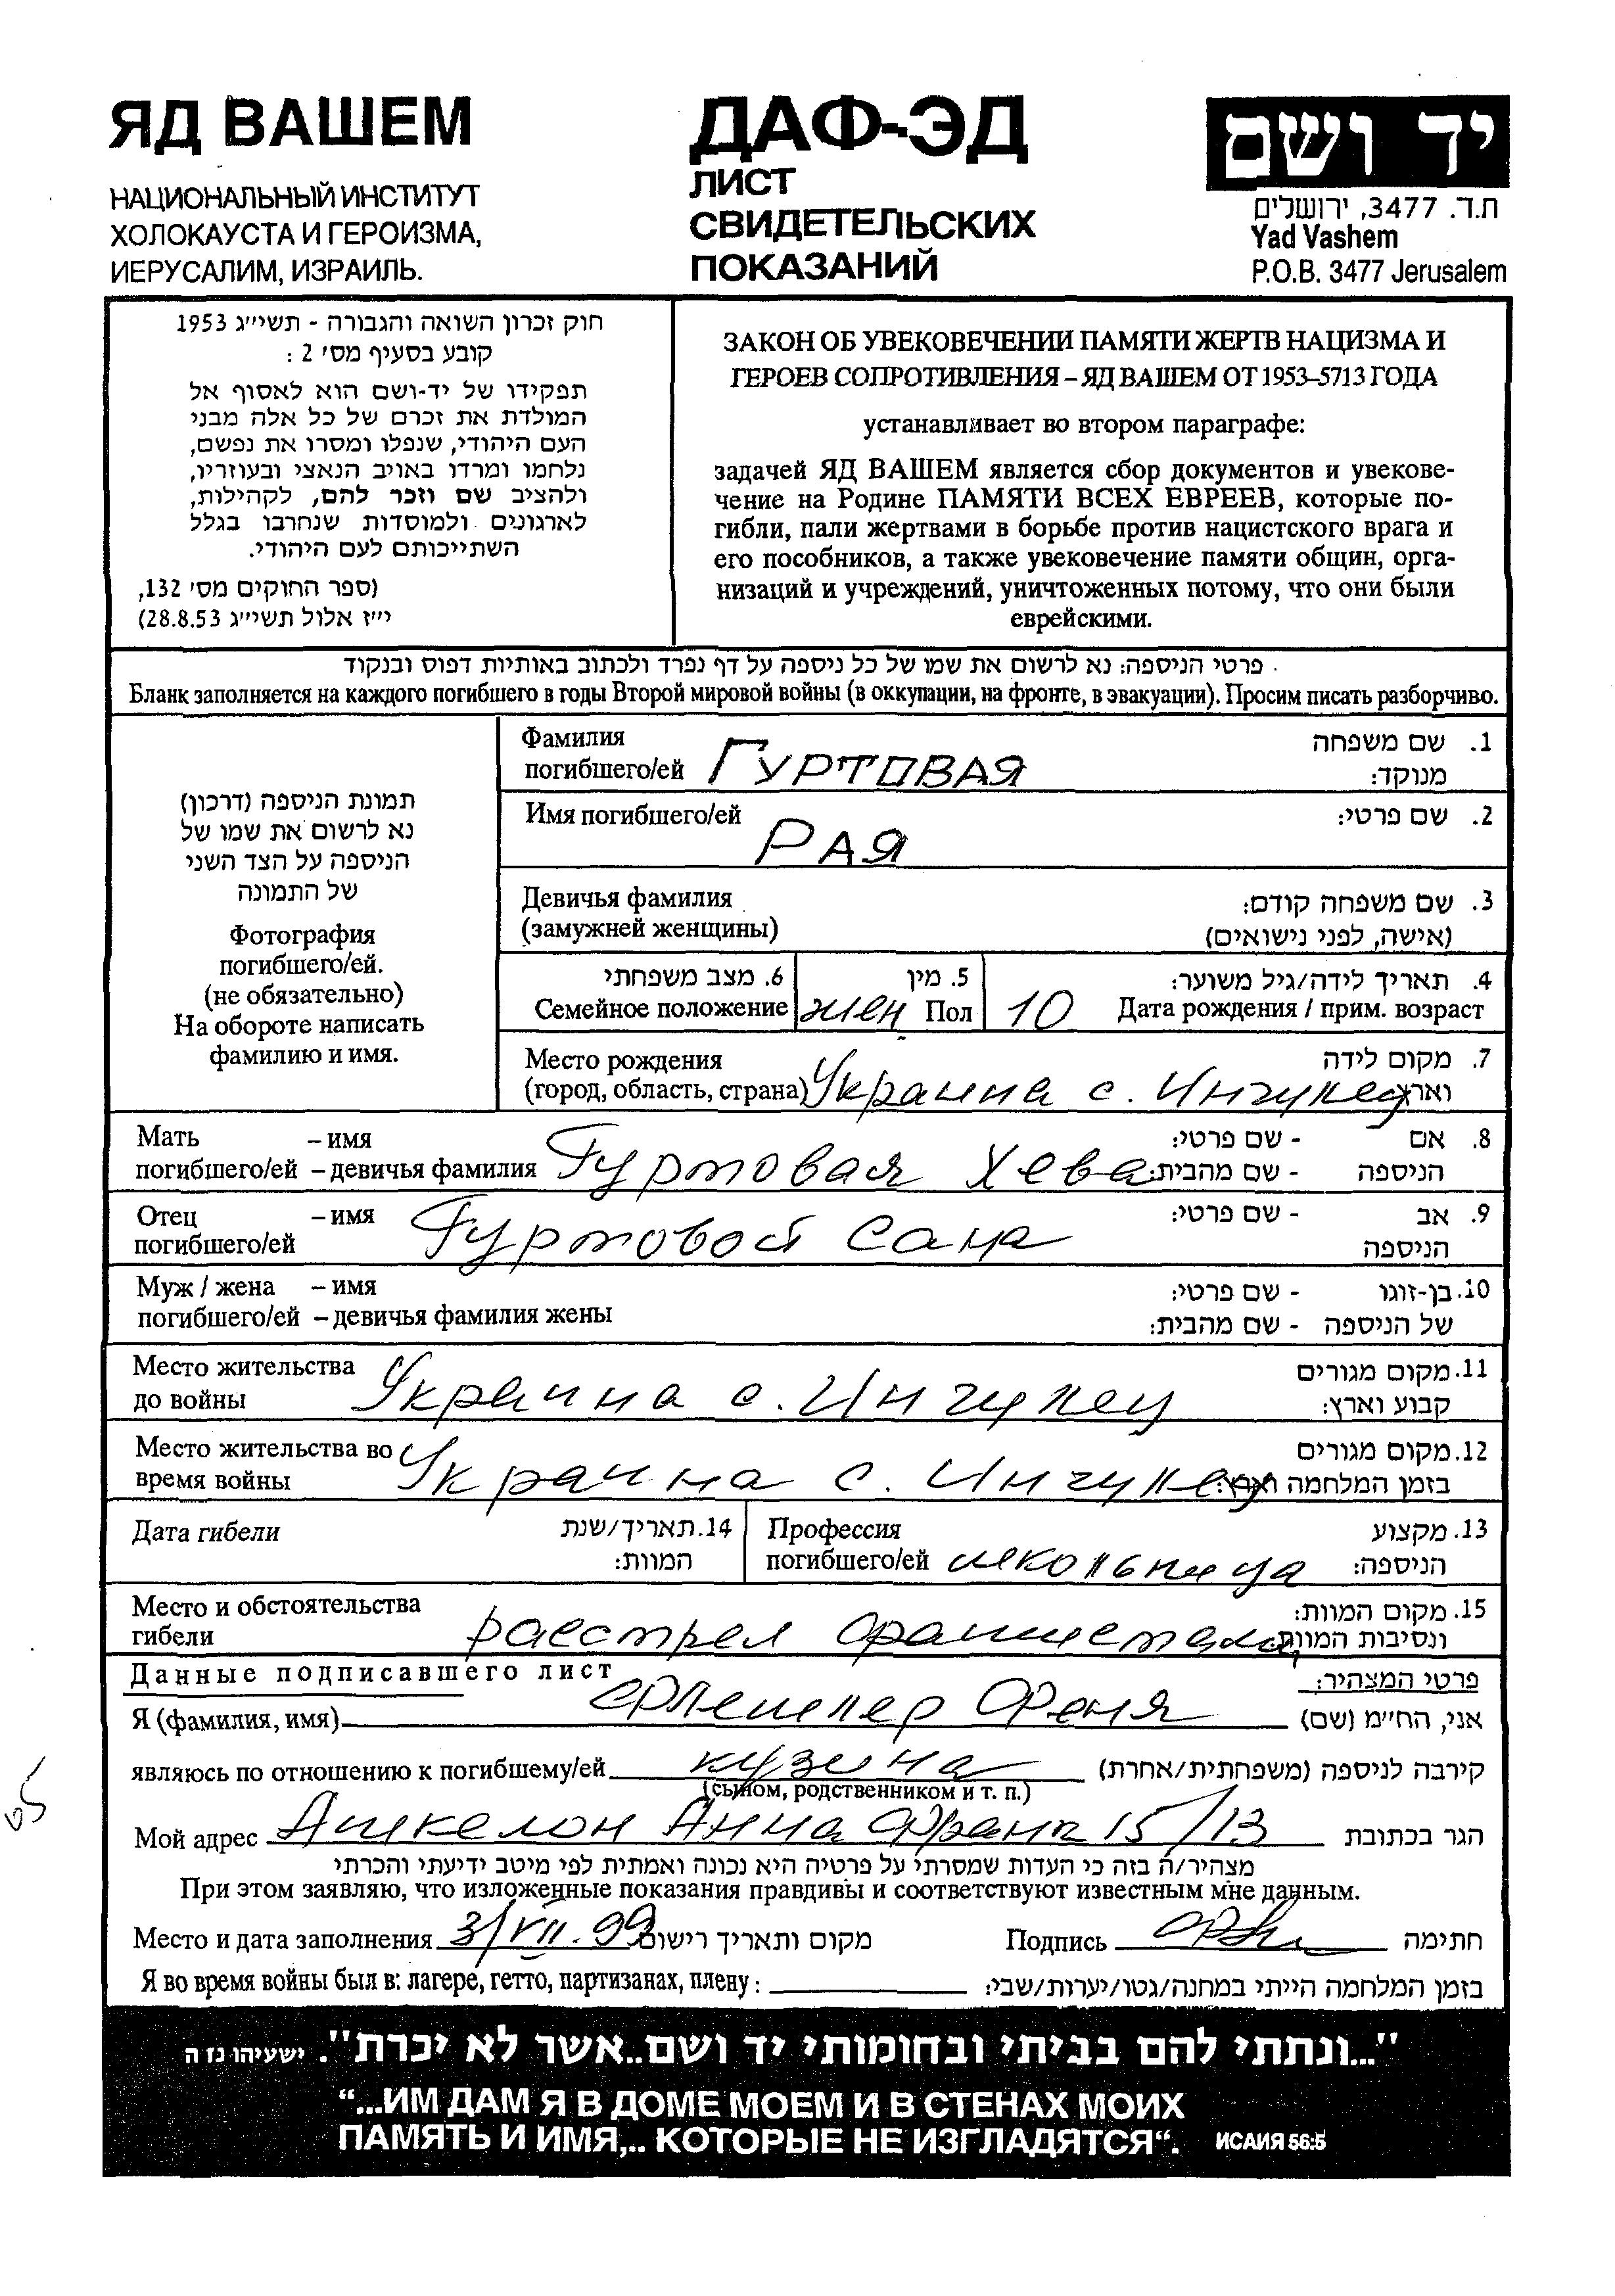 ЯД ВАШЕМ
НАЦИОНАЛЬНЫЙ ИНСТИТУТ
ХОЛОКАУСТА И ГЕРОИЗМА,
ИЕРУСАЛИМ, ИЗРАИЛЬ.
ДАФ-ЭД
ЛИСТ
СВИДЕТЕЛЬСКИХ
ПОКАЗАНИЙ
יד ושם
ת.ד. 3477, ירושלים
Yad Vashem
P.O.B. 3477 Jerusalem
חוק זכרון השואה והגבורה - תשי״ג 1953
קובע בסעיף מס׳ 2 :
תפקידו של יד-ושם הוא לאסוף אל
המולדת את זכרם של כל אלה מבני
העם היהודי, שנפלו ומסרו את נפשם,
נלחמו ומרדו באויב הנאצי ובעוזריו,
ולהציב שם וזכר להם, לקהילות,
לארגונים ולמוסדות שנחרבו בגלל
השתייכותם לעם היהודי.
(ספר החוקים מס׳ 132,
י״ז אלול תשי״ג 28.8.53)
ЗАКОН ОБ УВЕКОВЕЧЕНИИ ПАМЯТИ ЖЕРТВ НАЦИЗМА И
ГЕРОЕВ СОПРОТИВЛЕНИЯ – ЯД ВАШЕМ ОТ 1953–5713 ГОДА
устанавливает во втором параграфе:
задачей ЯД ВАШЕМ является сбор документов и увекове-
чение на Родине ПАМЯТИ ВСЕХ ЕВРЕЕВ, которые по-
гибли, пали жертвами в борьбе против нацистского врага и
его пособников, а также увековечение памяти общин, орга-
низаций и учреждений, уничтоженных потому, что они были
еврейскими.
פרטי הניספה: נא לרשום את שמו של כל ניספה על דף נפרד ולכתוב באותיות דפוס ובנקוד
Бланк заполняется на каждого погибшего в годы Второй мировой войны (в оккупации, на фронте, в эвакуации). Просим писать разборчиво.
תמונת הניספה (דרכון)
נא לרשום את שמו של
הניספה על הצד השני
של התמונה
Фотография
погибшего/ей.
(не обязательно)
На обороте написать
фамилию и имя.
Фамилия שם משפחה .1
погибшего/ей ГУРТОВАЯ מנוקד:
Имя погибшего/ей שם פרטי: .2
РАЯ
Девичья фамилия שם משפחה קודם: .3
(замужней женщины) (אישה, לפני נישואים)
6. מצב משפחתי 5. מין תאריך לידה/גיל משוער: .4
Семейное положение жен Пол 10 Дата рождения / прим. возраст
Место рождения מקום לידה .7
(город, область, страна) Украина с. Ингулец וארץ
Мать – имя אם - שם פרטי: .8
погибшего/ей – девичья фамилия Гуртовая Хева הניספה - שם מהבית:
Отец – имя Гуртовой אב - שם פרטי: .9
погибшего/ей הניספה
Муж / жена – имя בן-זוגו - שם פרטי: .10
погибшего/ей – девичья фамилия жены של הניספה - שם מהבית:
Место жительства מקום מגורים .11
до войны Украина с. Ингулец קבוע וארץ:
Место жительства во מקום מגורים .12
время войны Украина с. Ингулец בזמן המלחמה וארץ:
Дата гибели 14. תאריך/שנת Профессия מקצוע .13
המוות: погибшего/ей школьница הניספה:
Место и обстоятельства מקום המוות: .15
гибели расстрел фашистами ונסיבות המוות:
Данные подписавшего лист פרטי המצהיר:
Я (фамилия, имя) Фаня אני, הח״מ (שם)
являюсь по отношению к погибшему/ей кузина קירבה לניספה (משפחתית/אחרת)
(сыном, родственником и т. п.)
Мой адрес Ашкелон Анна Франк 15/13 הגר בכתובת
מצהיר/ה בזה כי העדות שמסרתי על פרטיה היא נכונה ואמתית לפי מיטב ידיעתי והכרתי
При этом заявляю, что изложенные показания правдивы и соответствуют известным мне данным.
Место и дата заполнения 31/VII.99 מקום ותאריך רישום Подпись חתימה
Я во время войны был в: лагере, гетто, партизанах, плену : בזמן המלחמה הייתי במחנה/גטו/יערות/שבי:
"...ונתתי להם בביתי ובחומותי יד ושם..אשר לא יכרת". ישעיהו נז ה
“...ИМ ДАМ Я В ДОМЕ МОЕМ И В СТЕНАХ МОИХ
ПАМЯТЬ И ИМЯ,.. КОТОРЫЕ НЕ ИЗГЛАДЯТСЯ“. ИСАИЯ 56:5